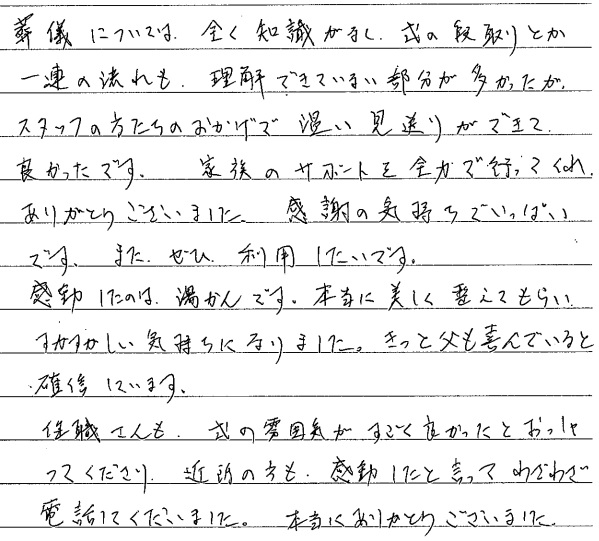 葬儀については、全く知識がなく、式の段取りとか
一連の流れも、理解できていない部分が多かったが、
スタッフの方たちのおかげで温い見送りができて、
良かったです。 家族のサポートを全力で行ってくれ、
ありがとうございました。 感謝の気持ちでいっぱい
です。また、ぜひ、利用したいです。
感動したのは、湯かんです。本当に美しく整えてもらい
すがすがしい気持ちになりました。きっと父も喜んでいると
確信しています。
住職さんも、式の雰囲気がすごく良かったとおっしゃ
ってくださり、近所の方も、感動したと言ってわざわざ
電話してくださいました。 本当にありがとうございました。